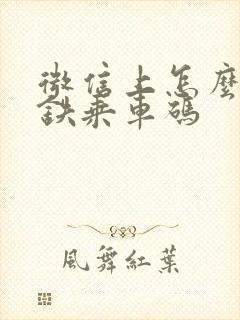 微信上怎麼
鉄乘車碼
風舞紅葉